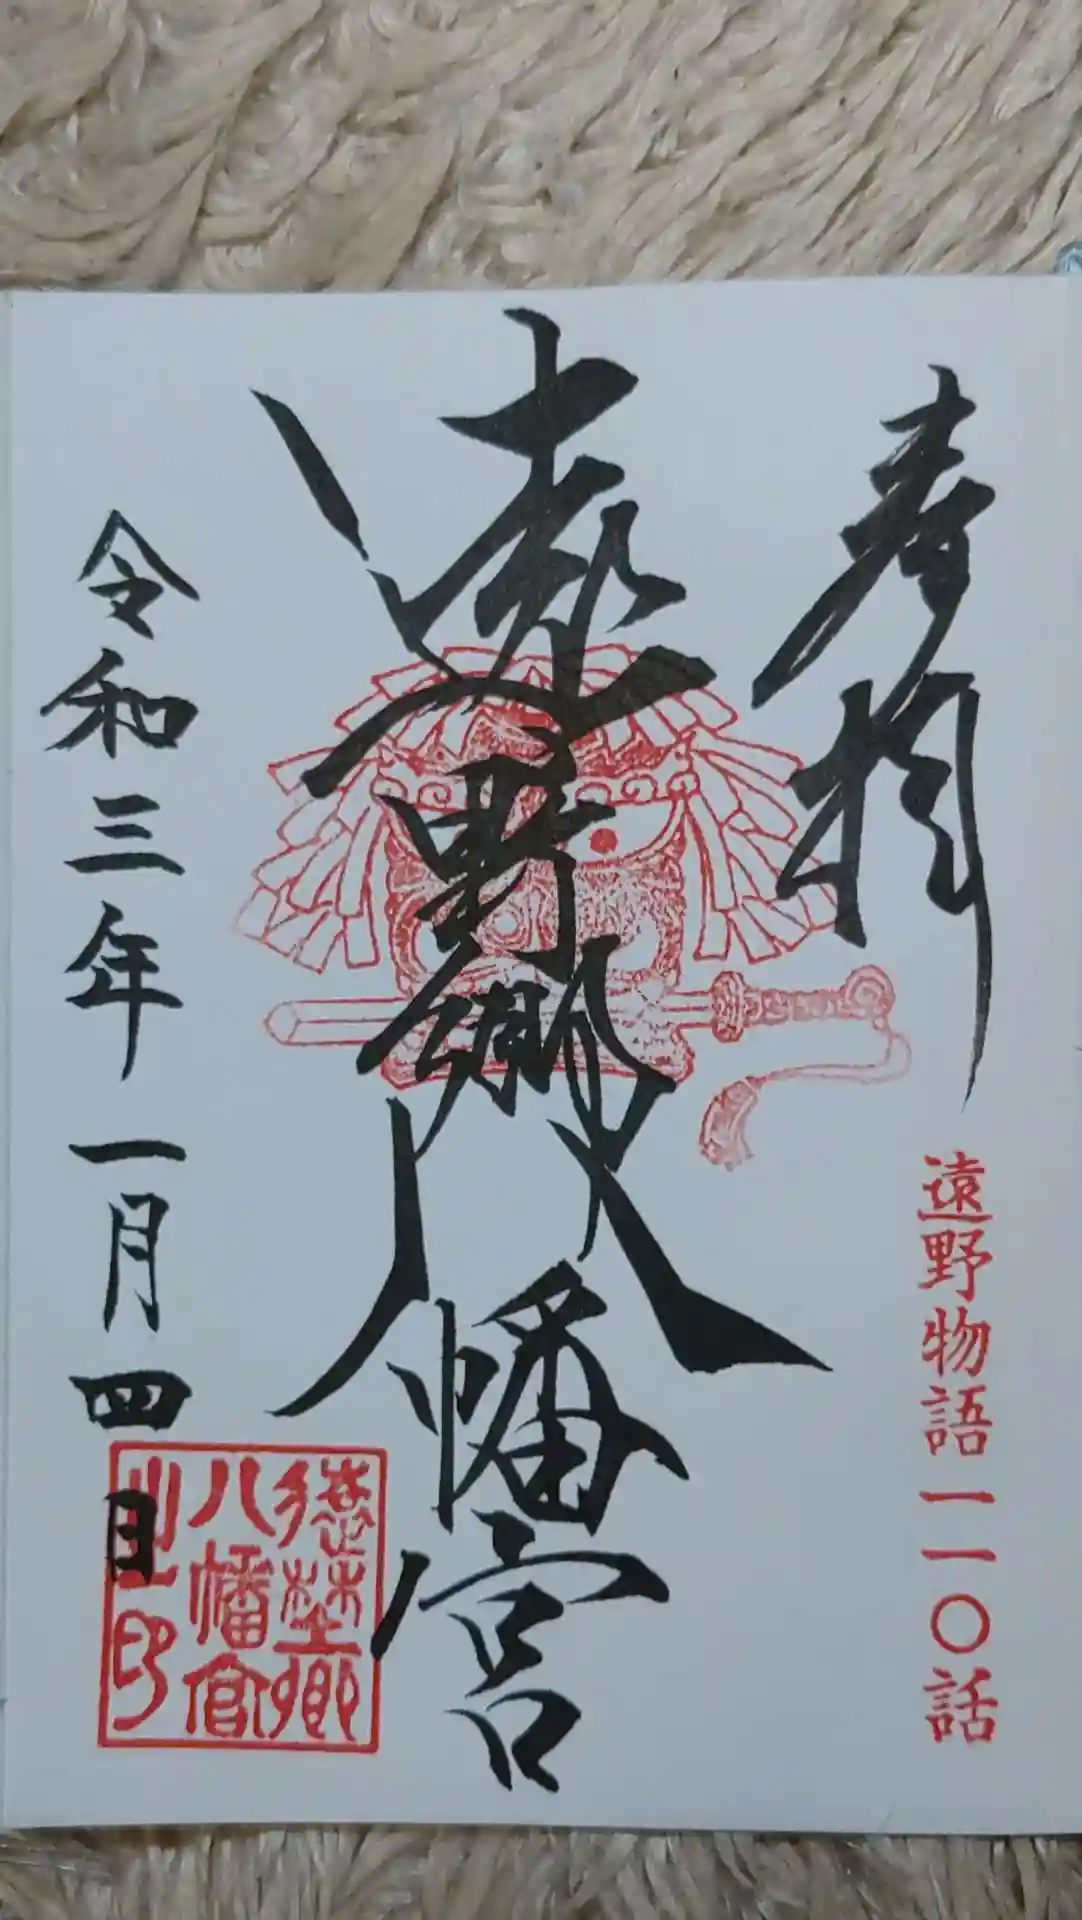 奉拝
遠野物語一一〇話
遠野郷八幡宮
令和三年一月四日
遠野郷
八幡宮
之印